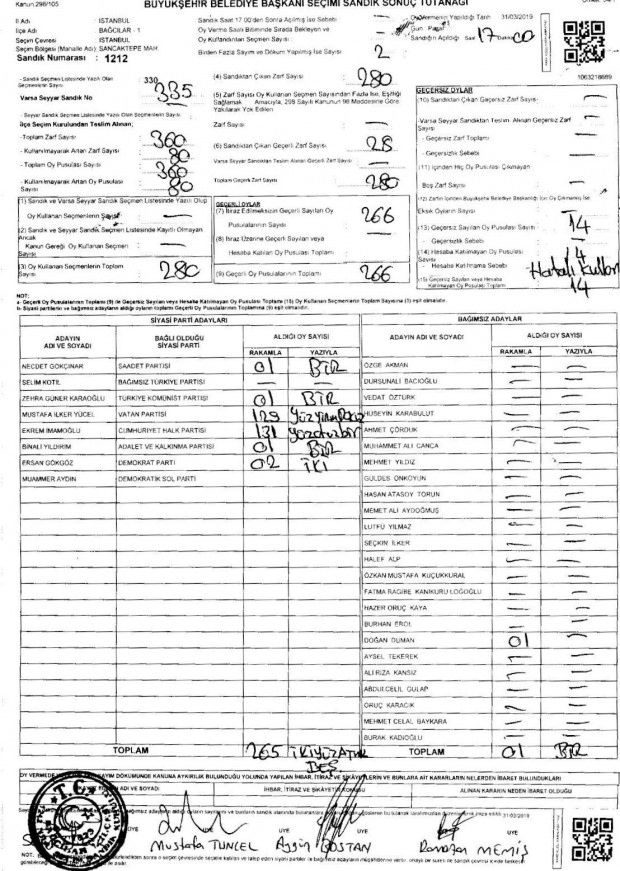 Kanun:298/105
BÜYÜKŞEHİR BELEDİYE BAŞKANI SEÇİMİ SANDIK SONUÇ TUTANAĞI
İl Adı : İSTANBUL
İlçe Adı : BAĞCILAR - 1
Seçim Çevresi : İSTANBUL
Seçim Bölgesi (Mahalle Adı): SANCAKTEPE MAH
Sandık Numarası : 1212
Sandık Saat 17.00'den Sonra Açılmış İse Sebebi
Oy Verme Saati Bitiminde Sırada Bekleyen ve
Oy Kullandırılan Seçmen Sayısı
Birden Fazla Sayım ve Döküm Yapılmış İse Sayısı 2
Oy Vermenin Yapıldığı Tarih 31/03/2019
Gün: Pazar
Sandığın Açıldığı Saat 17 Dakika 00
1063218689
- Sandık Seçmen Listesinde Yazılı Olan Seçmenlerin Sayısı 330 335
Varsa Seyyar Sandık No
- Seyyar Sandık Seçmen Listesinde Yazılı Olan Seçmenlerin Sayısı
İlçe Seçim Kurulundan Teslim Alınan;
-Toplam Zarf Sayısı 360
- Kullanılmayarak Artan Zarf Sayısı 80
- Toplam Oy Pusulası Sayısı 360
- Kullanılmayarak Artan Oy Pusulası Sayısı 80
(1) Sandık ve Varsa Seyyar Sandık Seçmen Listesinde Yazılı Olup
Oy Kullanan Seçmenlerin Sayısı
(2) Sandık ve Seyyar Sandık Seçmen Listesinde Kayıtlı Olmayan Ancak
Kanun Gereği Oy Kullanan Seçmen Sayısı
(3) Oy Kullanan Seçmenlerin Toplam Sayısı 280
(4) Sandıktan Çıkan Zarf Sayısı 280
(5) Zarf Sayısı Oy Kullanan Seçmen Sayısından Fazla İse, Eşitliği
Sağlamak Amacıyla, 298 Sayılı Kanunun 98 Maddesine Göre
Yakılarak Yok Edilen
Zarf Sayısı
(6) Sandıktan Çıkan Geçerli Zarf Sayısı 28
Varsa Seyyar Sandıktan Teslim Alınan Geçerli Zarf Sayısı
Toplam Geçerli Zarf Sayısı 280
GEÇERLİ OYLAR
(7) İtiraz Edilmeksizin Geçerli Sayılan Oy
Pusulalarının Sayısı 266
(8) İtiraz Üzerine Geçerli Sayılan veya
Hesaba Katılan Oy Pusulalarının Sayısı
(9) Geçerli Oy Pusulalarının Toplamı 266
GEÇERSİZ OYLAR
(10) Sandıktan Çıkan Geçersiz Zarf Sayısı
-Varsa Seyyar Sandıktan Teslim Alınan Geçersiz Zarf Sayısı
- Geçersiz Zarf Toplamı
- Geçersizlik Sebebi
(11) İçinden Hiç Oy Pusulası Çıkmayan
Boş Zarf Sayısı
(12) Zarfın İçinden Büyükşehir Belediye Başkanlığı İçin Oy Çıkmamış İse
Eksik Oyların Sayısı
(13) Geçersiz Sayılan Oy Pusulası Sayısı 14
- Geçersizlik Sebebi
(14) Hesaba Katılmayan Oy Pusulası Sayısı
- Hesaba Katılmama Sebebi Hatalı
(15) Geçersiz Sayılan veya Hesaba
Katılmayan Oy Pusulası Toplamı 14
NOT:
a- Geçerli Oy Pusulalarının Toplamı (9) ile Geçersiz Sayılan veya Hesaba Katılmayan Oy Pusulası Toplamı (15) Oy Kullanan Seçmenlerin Toplam Sayısına (3) eşit olmalıdır.
b- Siyasi partilerin ve bağımsız adayların aldığı oyların toplamı Geçerli Oy Pusulalarının Toplamına (9) eşit olmalıdır.
SİYASİ PARTİ ADAYLARI
BAĞIMSIZ ADAYLAR
ADAYIN ADI VE SOYADI BAĞLI OLDUĞU SİYASİ PARTİ ALDIĞI OY SAYISI RAKAMLA YAZIYLA
ADAYIN ADI VE SOYADI ALDIĞI OY SAYISI RAKAMLA YAZIYLA
NECDET GÖKÇINAR SAADET PARTİSİ 01 BİR
SELİM KOTİL BAĞIMSIZ TÜRKİYE PARTİSİ — —
ZEHRA GÜNER KARAOĞLU TÜRKİYE KOMÜNİST PARTİSİ 01 BİR
MUSTAFA İLKER YÜCEL VATAN PARTİSİ 129
EKREM İMAMOĞLU CUMHURİYET HALK PARTİSİ 131 yüzotuzbir
BİNALİ YILDIRIM ADALET VE KALKINMA PARTİSİ 01 BİR
ERSAN GÖKGÖZ DEMOKRAT PARTİ 02 İKİ
MUAMMER AYDIN DEMOKRATİK SOL PARTİ
ÖZGE AKMAN — —
DURSUNALİ BACIOĞLU — —
VEDAT ÖZTÜRK — —
HÜSEYİN KARABULUT — —
AHMET ÇÖRDÜK — —
MUHAMMET ALİ CANCA — —
MEHMET YILDIZ — —
GÜLDES ÖNKOYUN — —
HASAN ATASOY TORUN — —
MEMET ALİ AYDOĞMUŞ — —
LÜTFÜ YILMAZ — —
SEÇKİN İLKER — —
HALEF ALP — —
ÖZKAN MUSTAFA KÜÇÜKKURAL — —
FATMA RAGİBE KANIKURU LOĞOĞLU — —
HAZER ORUÇ KAYA — —
BURHAN EROL — —
DOĞAN DUMAN 01 —
AYSEL TEKEREK — —
ALİ RIZA KANSIZ — —
ABDÜLCELİL GÜLAP — —
ORUÇ KARACIK — —
MEHMET CELAL BAYKARA — —
BURAK KADIOĞLU — —
TOPLAM 265 İKİYÜZATMIŞ BEŞ
TOPLAM 01 BİR
OY VERMEDE SAYIM DÖKÜMÜNDE KANUNA AYKIRILIK BULUNDUĞU YOLUNDA YAPILAN İHBAR, İTİRAZ VE ŞİKAYETLERİN VE BUNLARA AİT KARARLARIN NELERDEN İBARET BULUNDUKLARI
ADI VE SOYADI İHBAR, İTİRAZ VE ŞİKAYETİN KONUSU ALINAN KARARIN NEDEN İBARET OLDUĞU
31/03/2019
ÜYE ÜYE ÜYE
Mustafa TUNCEL BOSTAN Ramazan MEMİŞ